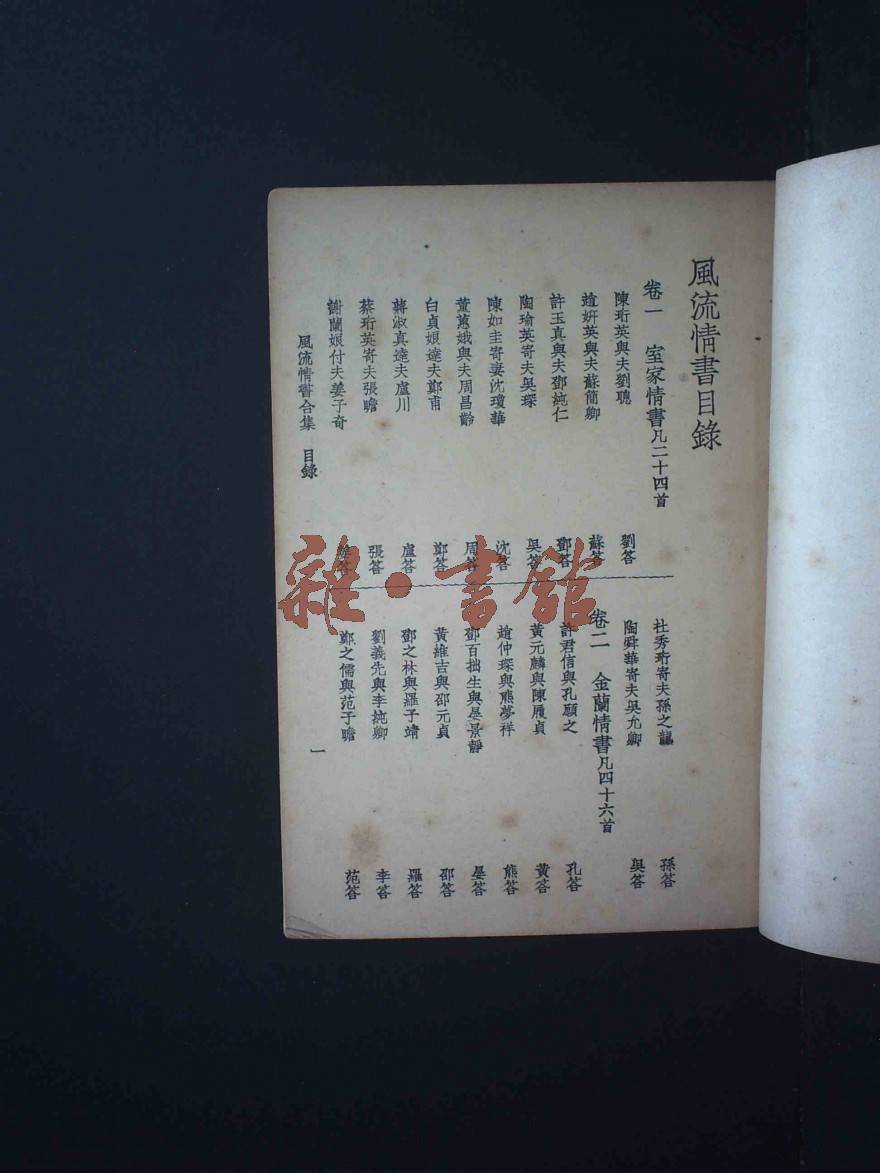 風流情書目錄
卷一 室家情書凡二十四首
陳珩英與夫劉聰 劉答
趙妍英與夫蘇簡卿 蘇答
許玉真與夫鄧純仁 鄧答
陶瑜英寄夫吳琛 吳答
陳如圭寄妻沈瓊華 沈答
董蕙娥與夫周昌齡 周答
白貞娘達夫鄭甫 鄭答
蔣淑真達夫盧川 盧答
蔡珩英寄夫張瞻 張答
謝蘭娘付夫姜子奇 答
杜秀珩寄夫孫之龍 孫答
陶舜華寄夫吳允卿 吳答
卷二 金蘭情書凡四十六首
許君信與孔願之 孔答
黃元麟與陳履貞 黃答
趙仲琛與熊夢祥 熊答
鄧百拙生與晏景靜 晏答
黃維吉與邵元貞 邵答
鄧之林與羅子靖 羅答
劉義先與李純卿 李答
鄭之儒與范子瞻 范答
風流情書合集 目錄
一
雜·書館